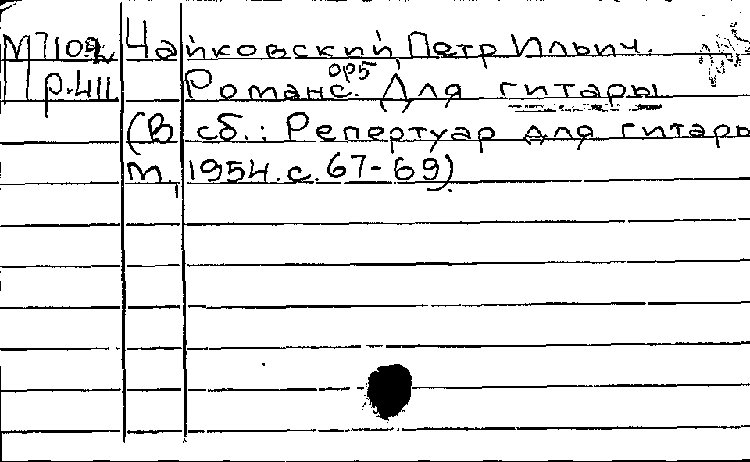 М7109 Чайковский, Петр Ильич.
р.411 Романс. ор5 Для гитары
(В сб.: Репертуар для гитары
М, 1954. с. 67-69)